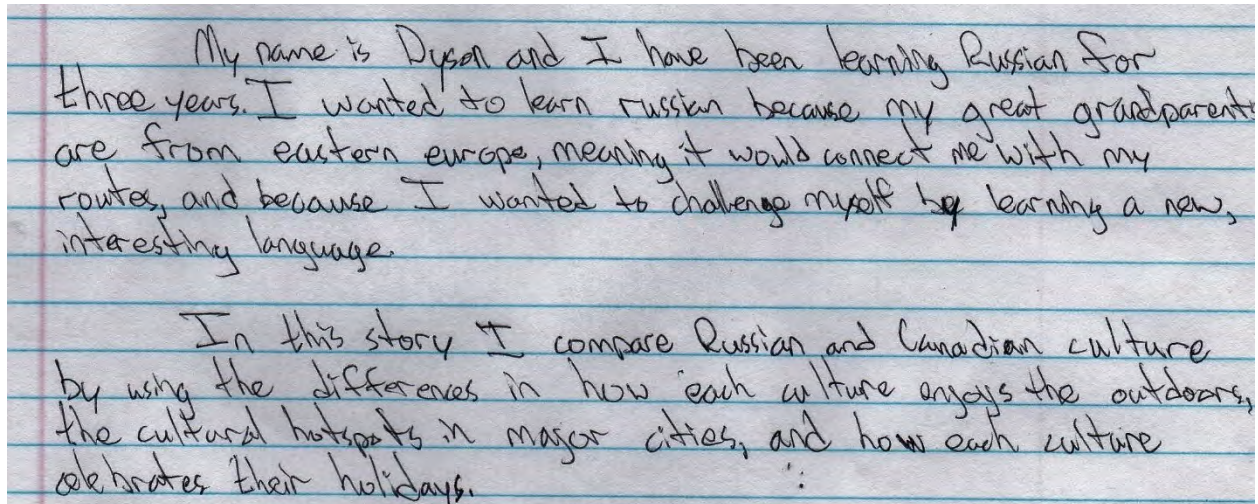 My name is Dyson and I have been learning Russian for
three years. I wanted to learn russian because my great grandparents
are from eastern europe, meaning it would connect me with my
routes, and because I wanted to challenge myself by learning a new,
interesting language.
In this story I compare Russian and Canadian culture
by using the differences in how each culture enjoys the outdoors,
the cultural hotspots in major cities, and how each culture
celebrates their holidays.